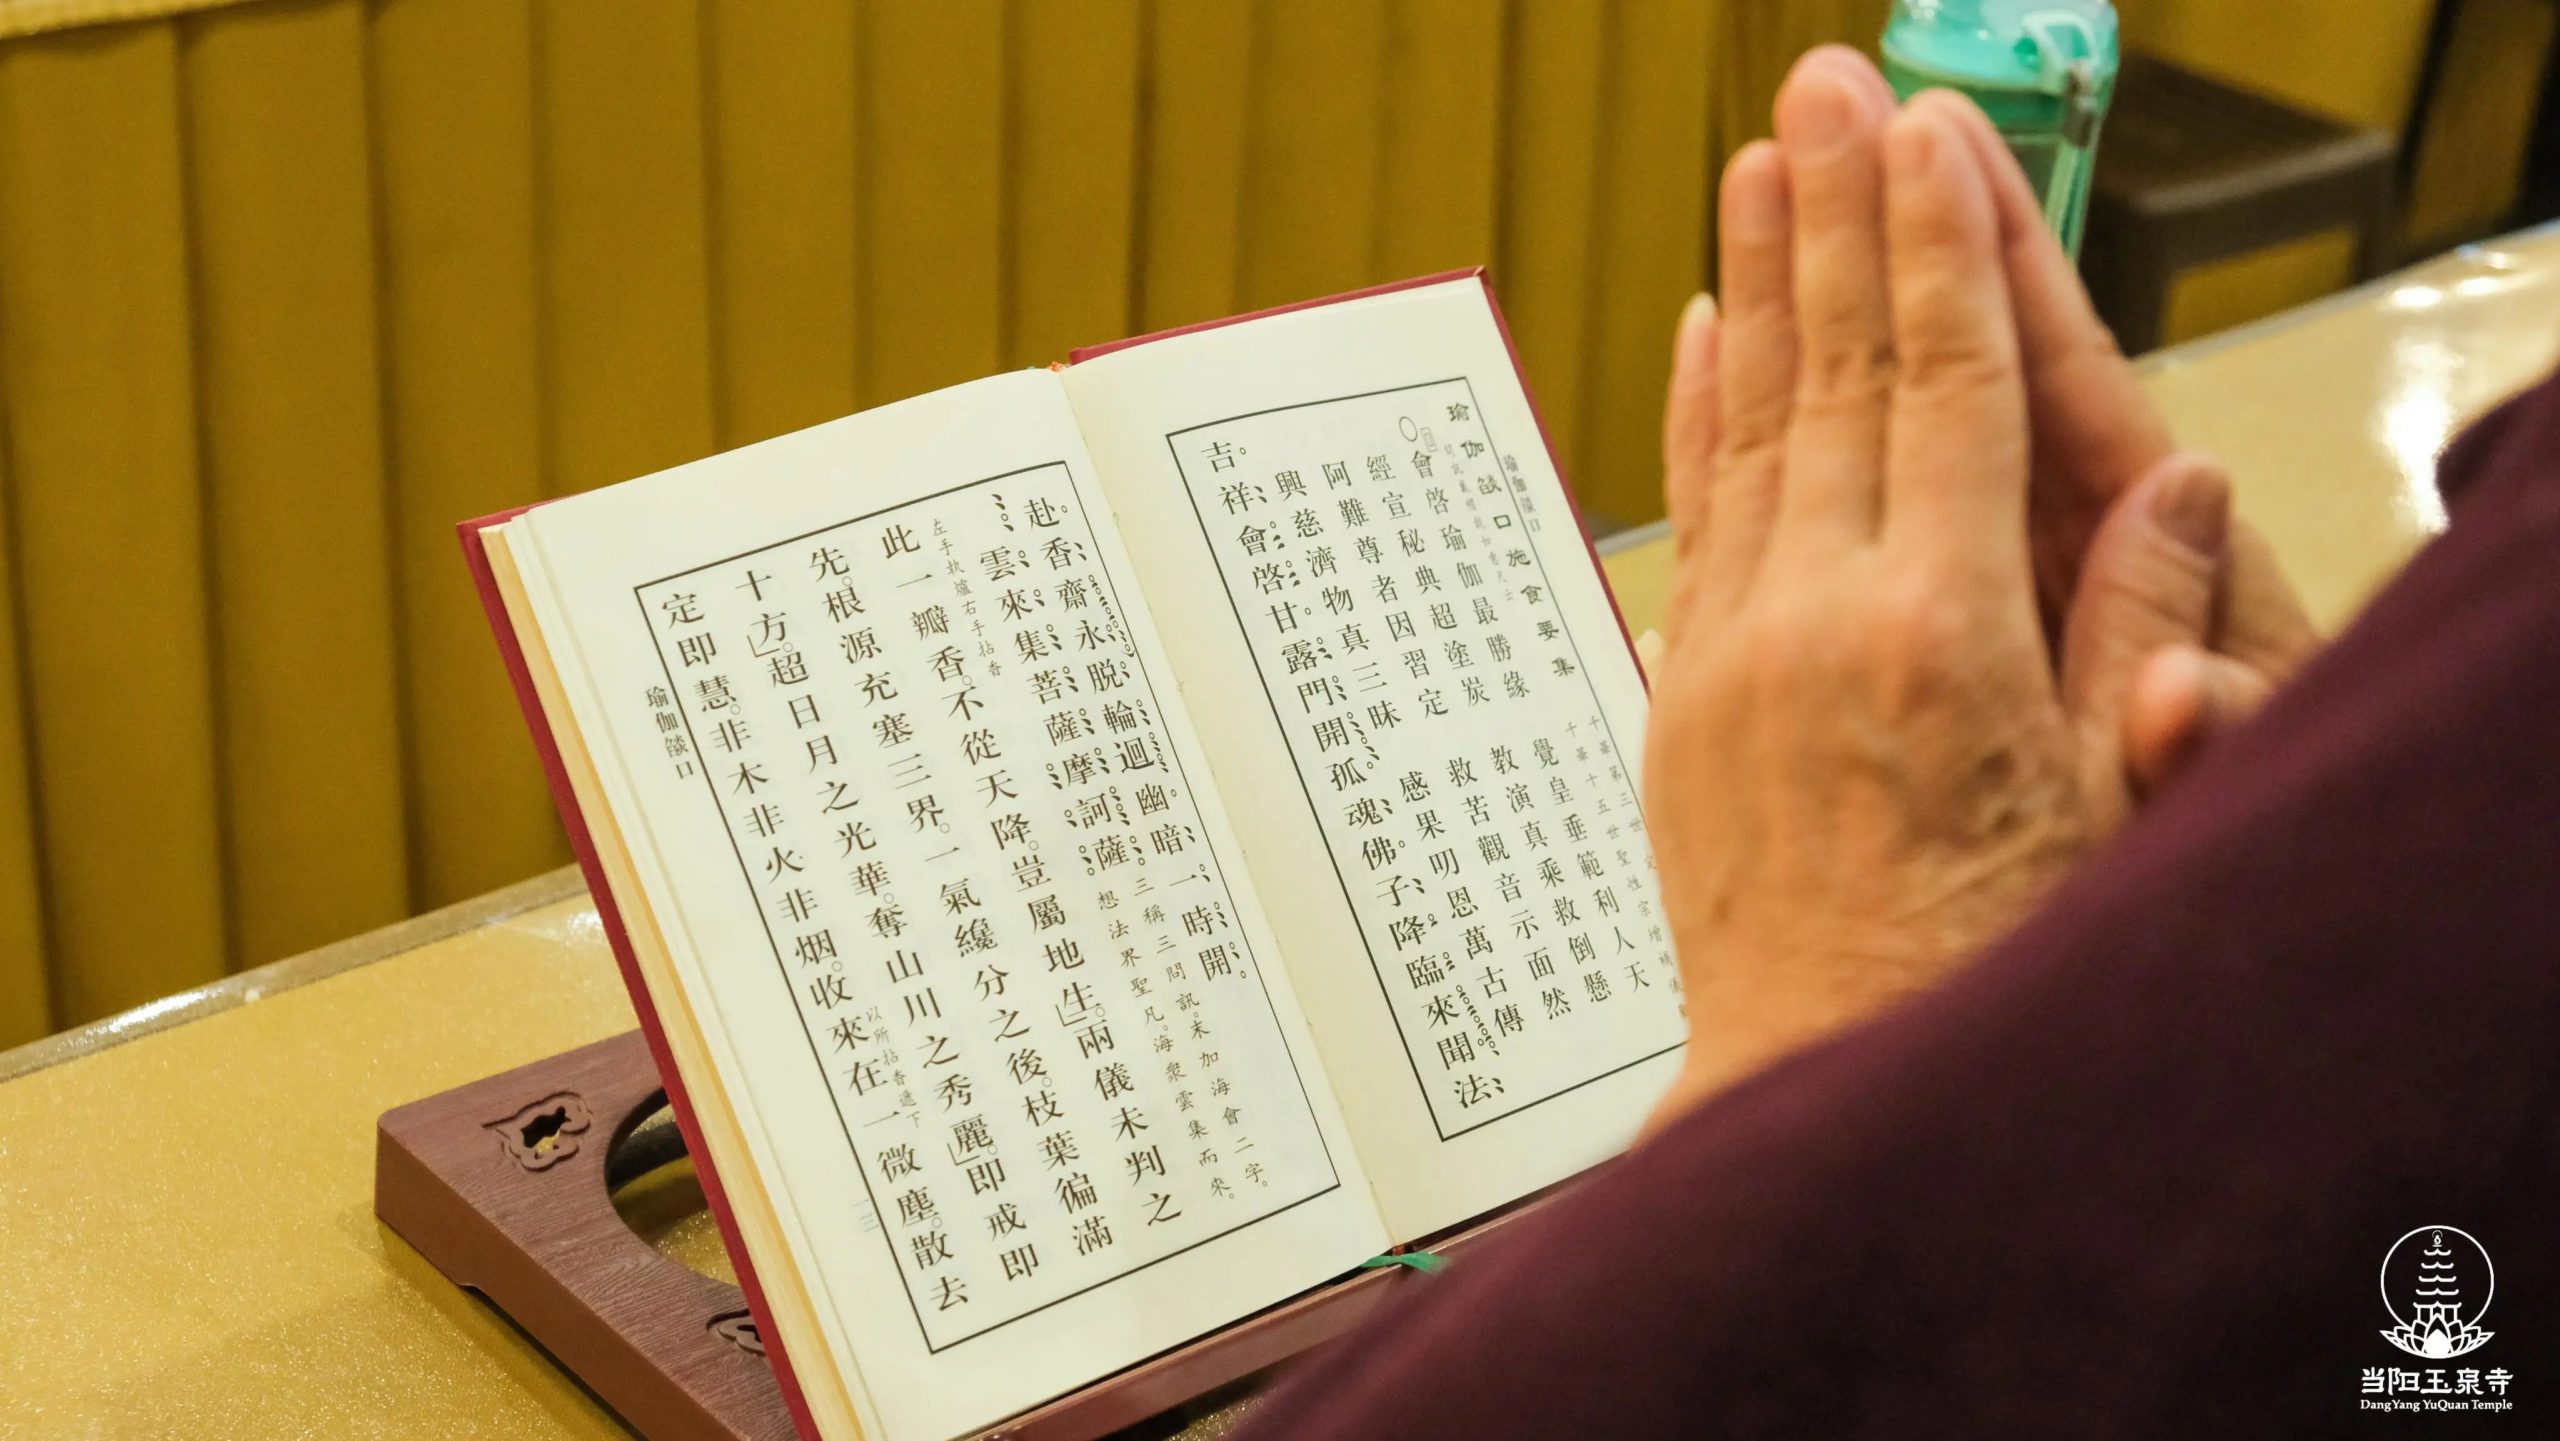 瑜伽燄口
瑜伽燄口施食要集
千華第三世
千華十五世聖性宗增補
會啓瑜伽最勝緣 覺皇垂範利人天
經宣秘典超塗炭 教演真乘救倒懸
阿難尊者因習定 救苦觀音示面然
興慈濟物真三昧 感果叨恩萬古傳
吉祥會啓甘露門開孤魂佛子降臨來聞法
赴香齋永脫輪迴幽暗一時開
雲來集菩薩摩訶薩
三稱三問訊。末加海會二字。
想法界聖凡。海衆雲集而來。
左手執爐右手拈香
此一瓣香。不從天降。豈屬地生。」兩儀未判之
先。根源充塞三界。一氣纔分之後。枝葉徧滿
十方。」超日月之光華。奪山川之秀麗。」即戒即
以所拈香遞下
定即慧。非木非火非烟。收來在一微塵。散去
瑜伽燄口
一三
当阳玉泉寺
DangYang YuQuan Temple